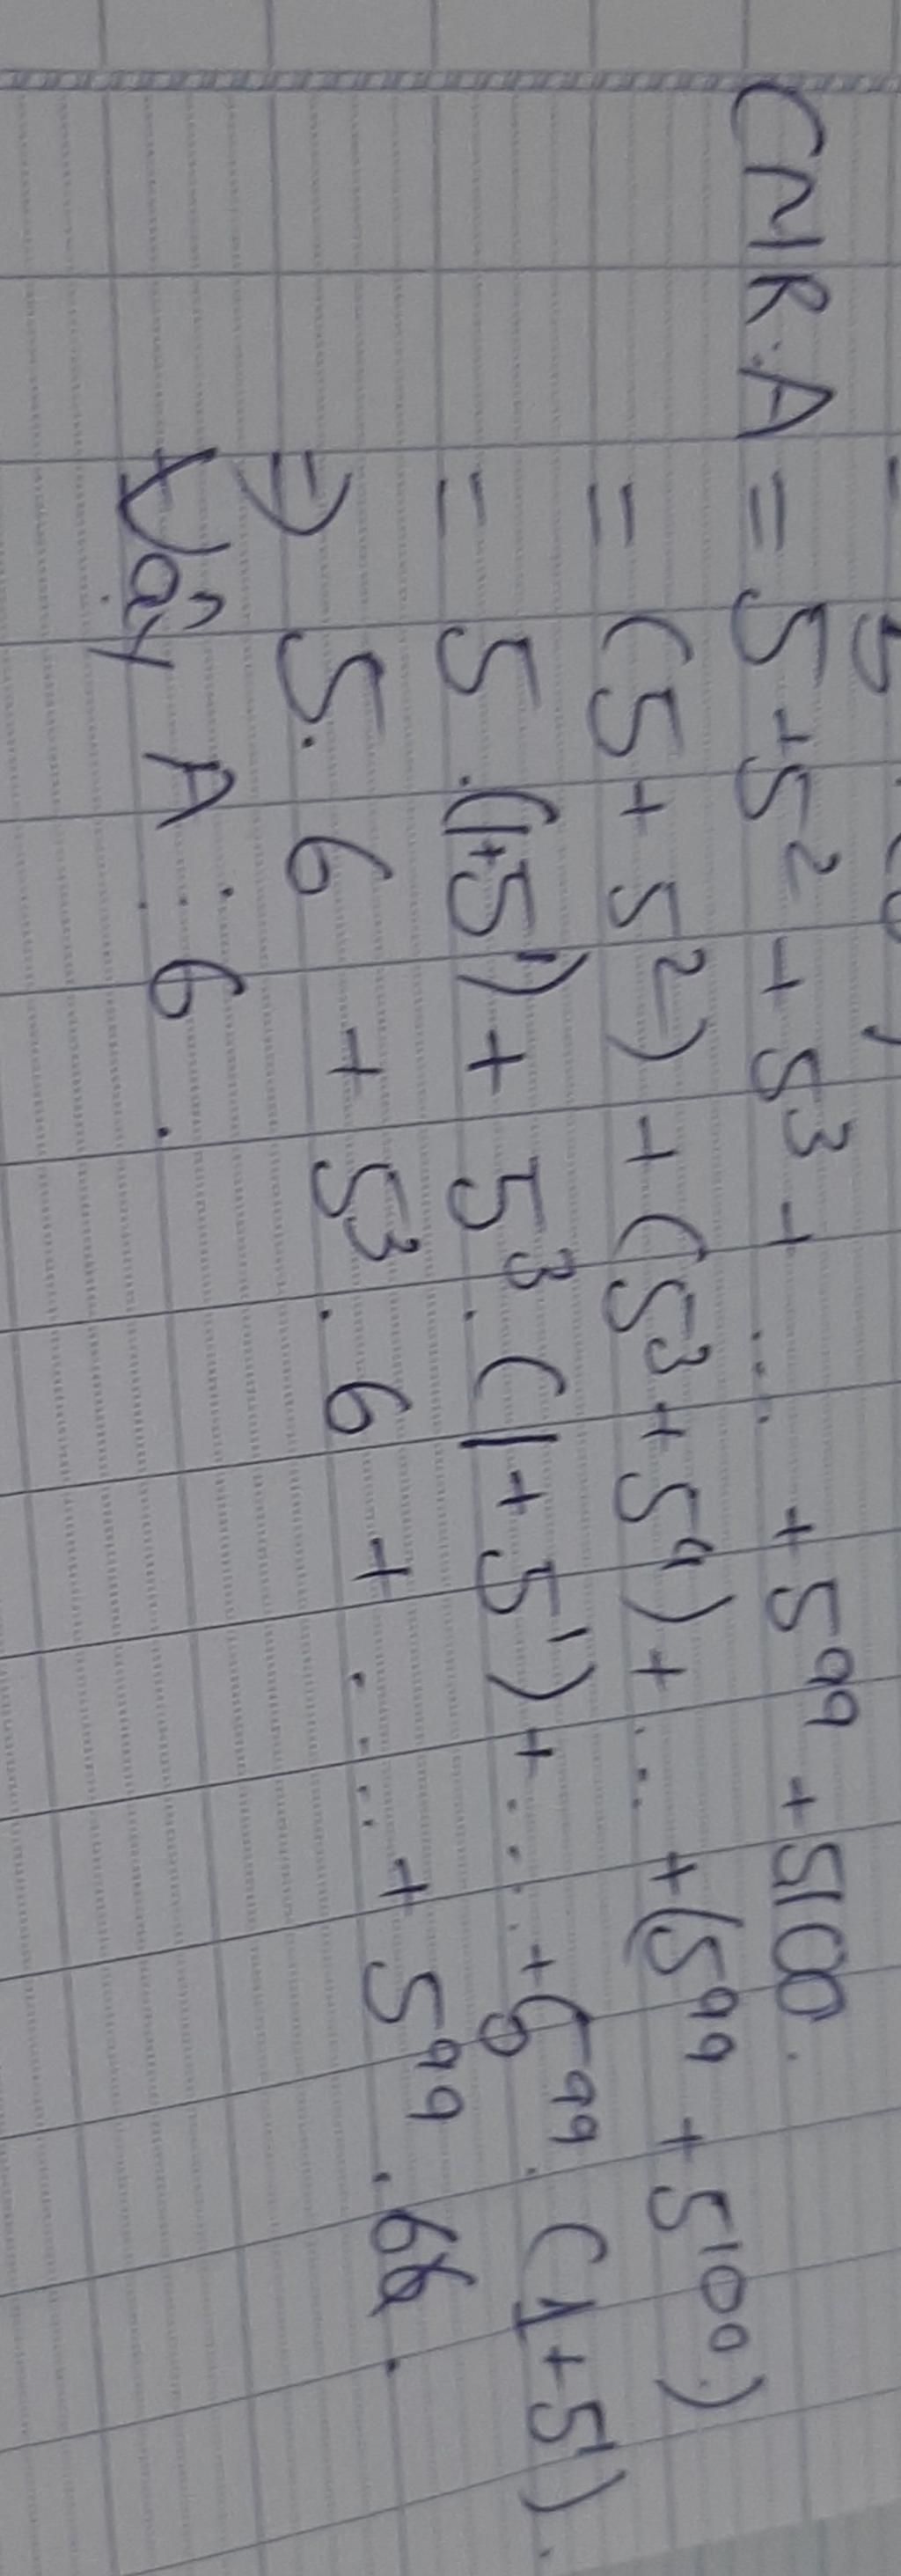 CMR: A = 5 + 5² + 5³ + .... + 5⁹⁹ + 5100.
= (5 + 5²) + (5³ + 5⁴) + ... + (5⁹⁹ + 5¹⁰⁰)
= 5 . (1+5¹) + 5³ . (1 + 5¹) + .... + 5⁹⁹ . (1 + 5¹).
=) 5 . 6 + 5³ . 6 + .... + 5⁹⁹ . 6
Vậy A ⋮ 6 .